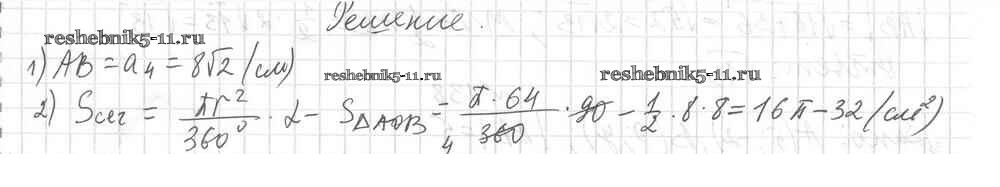 Решение.
reshebnik5-11.ru
1) AB = a₄ = 8√2 (см)
reshebnik5-11.ru
reshebnik5-11.ru
2) Sсег = πr²/360° · α - S△AOB = π · 64/360 · 90 - 1/2 · 8 · 8 = 16π - 32 (см²)
4